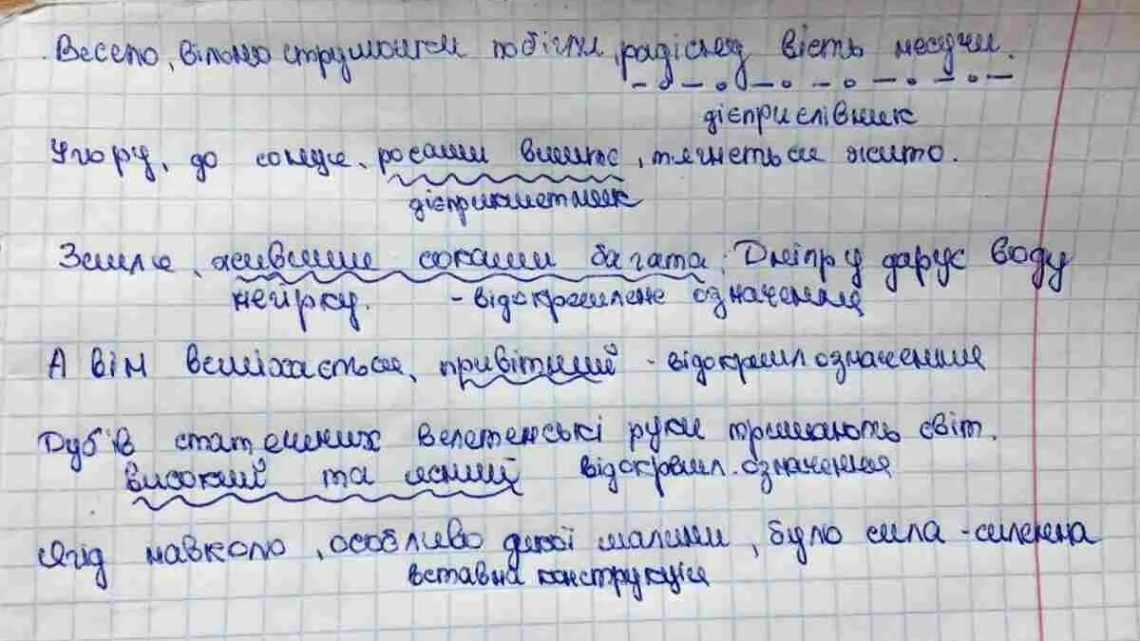 Весело, вільно струмочки побігли, радісную вість несучи.
дієприслівник
Угору, до сонця, росами вмите, тягнеться жито.
дієприкметник
Земля, живими соками багата, Дніпру дарує воду
неірку. - відокремлене означення
А він всміхається, привітний - відокремл означення
Дубів статечних велетенські руки тримають світ.
високий та ясний відокремл. означення
Ягід навколо, особливо дикої малини, було сила-силенна
вставна конструкція